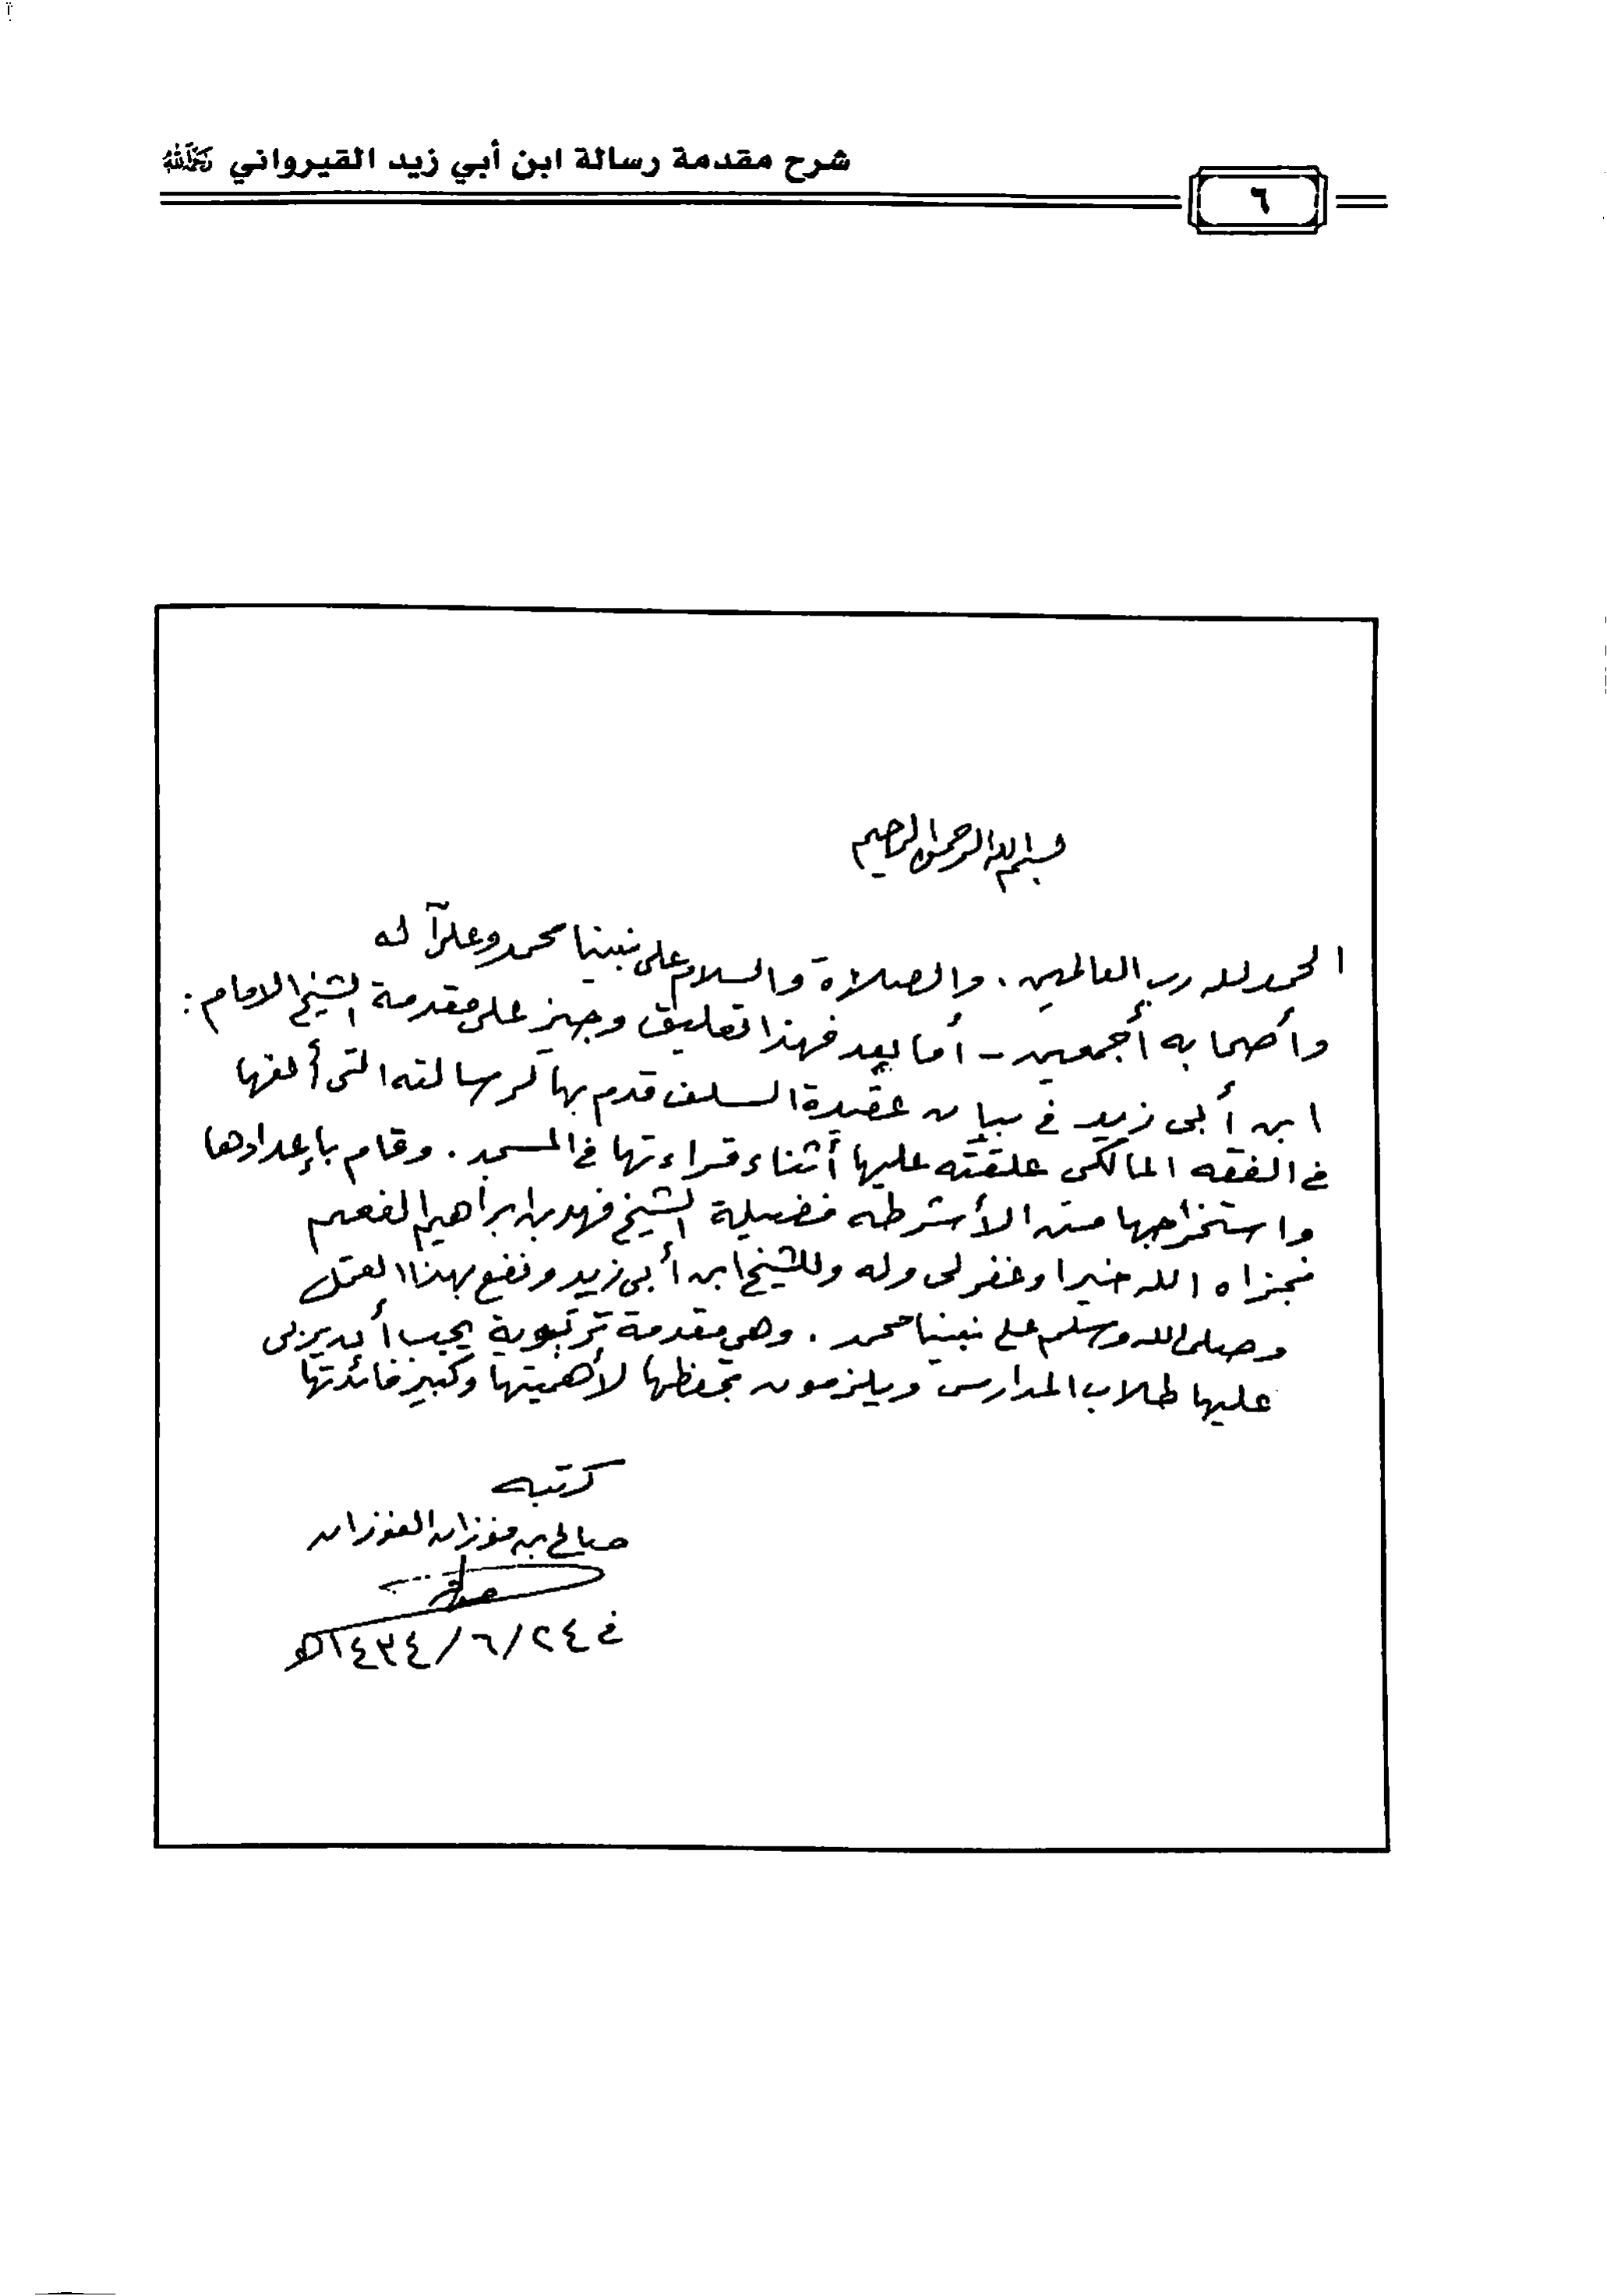 شرح مقدمة رسالة ابن أبي زيد القيرواني رحمه الله
٦
بسم الله الرحمن الرحيم
الحمد لله رب العالمين . والصلاة والسلام على نبينا محمد وعلى آله
وأصحابه أجمعين – أما بعد فهذا تعليق وجيز على مقدمة الشيخ الامام :
ابن أبى زيد فى بيان عقيدة السلف قدم بها لرسالته التى ألفها
فى الفقه المالكى علقته عليها أثناء قراءتها فى المسجد . وقام بإعدادها
واستخراجها من الأشرطه فضيلة الشيخ فهد بن ابراهيم الفعيم
فجزاه الله خيرا وغفر لى وله وللشيخ ابن أبى زيد ونفع بهذا العمل
وصلى الله وسلم على نبينا محمد . وهى مقدمة تربوية يجب أن يربى
عليها طلاب المدارس ويلزمون بحفظها لأهميتها وكبير فائدتها
كتبه
صالح بن فوزان الفوزان
فى ٢٤/٦/١٤٣٤هـ